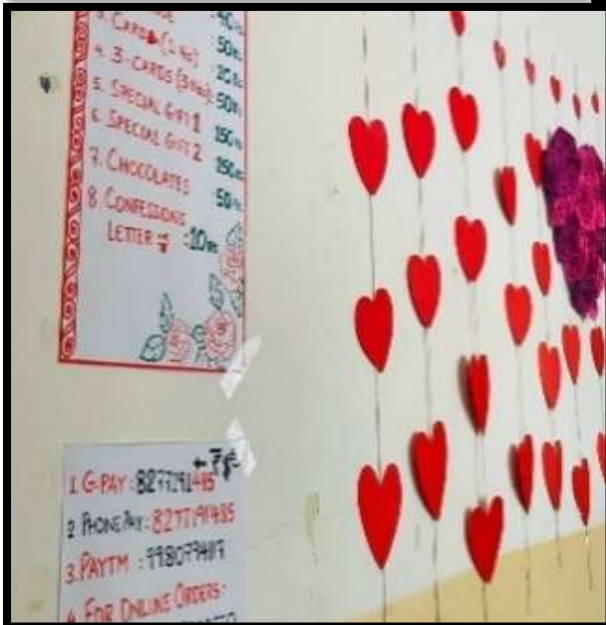 : 40
3. CARD (1 no) : 50
4. 3-CARDS (3 no) :
5. SPECIAL GIFT 1 150
6. SPECIAL GIFT 2 250
7. CHOCOLATES : 50
8. CONFESSIONS
LETTER : 10
1. G-PAY : 8277191485
2 PHONE PAY : 8277191485
3. PAYTM :
4. FOR ONLINE ORDERS: